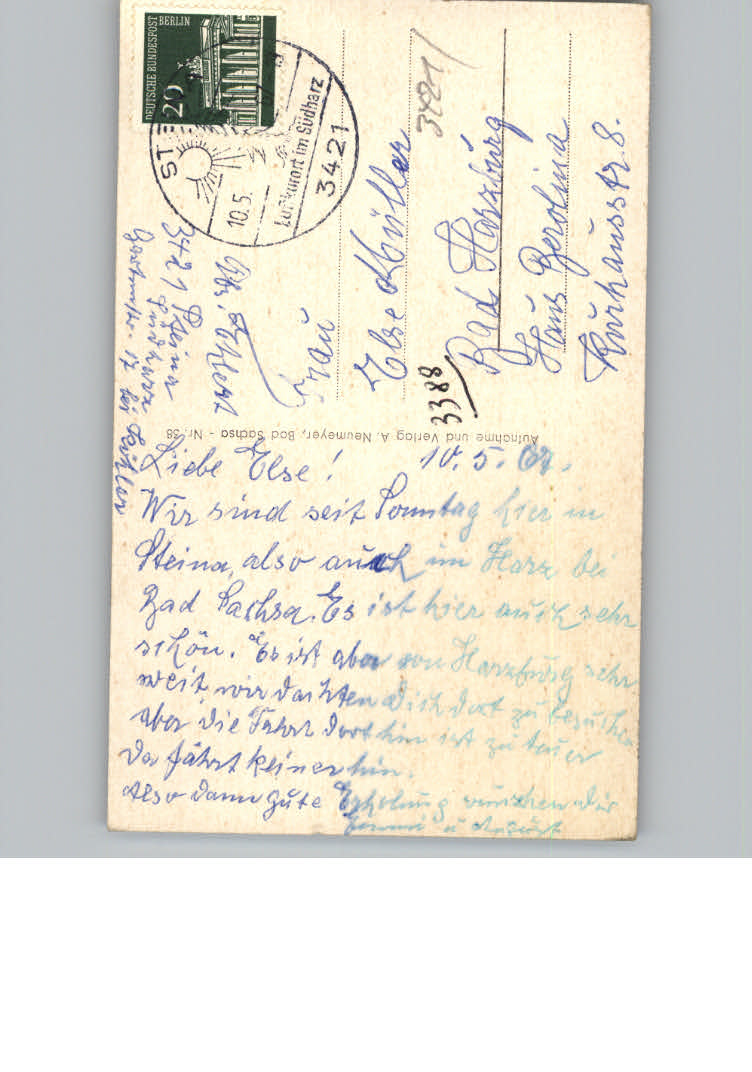 DEUTSCHE BUNDESPOST BERLIN
20
10.5.
Luftkurort im Südharz
3421
3421
3421 Steina
Südharz
Frau
Else Müller
3388 Bad Harzburg
Haus Berolina
Kurhausstr. 8.
Aufnahme und Verlag A. Neumeyer, Bad Sachsa - Nr. 38
10. 5. 67.
Liebe Else!
Wir sind seit Sonntag hier in
Steina, also auch im Harz bei
Bad Sachsa. Es ist hier auch sehr
schön. Es ist aber von Harzburg sehr
weit, wir dachten Dich dort zu besuchen
aber die Fahrt dorthin ist zu teuer
Da fährt keiner hin.
Also dann gute Erholung wünschen Dir